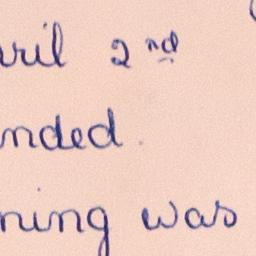 ril 2nd
nded.
ning was